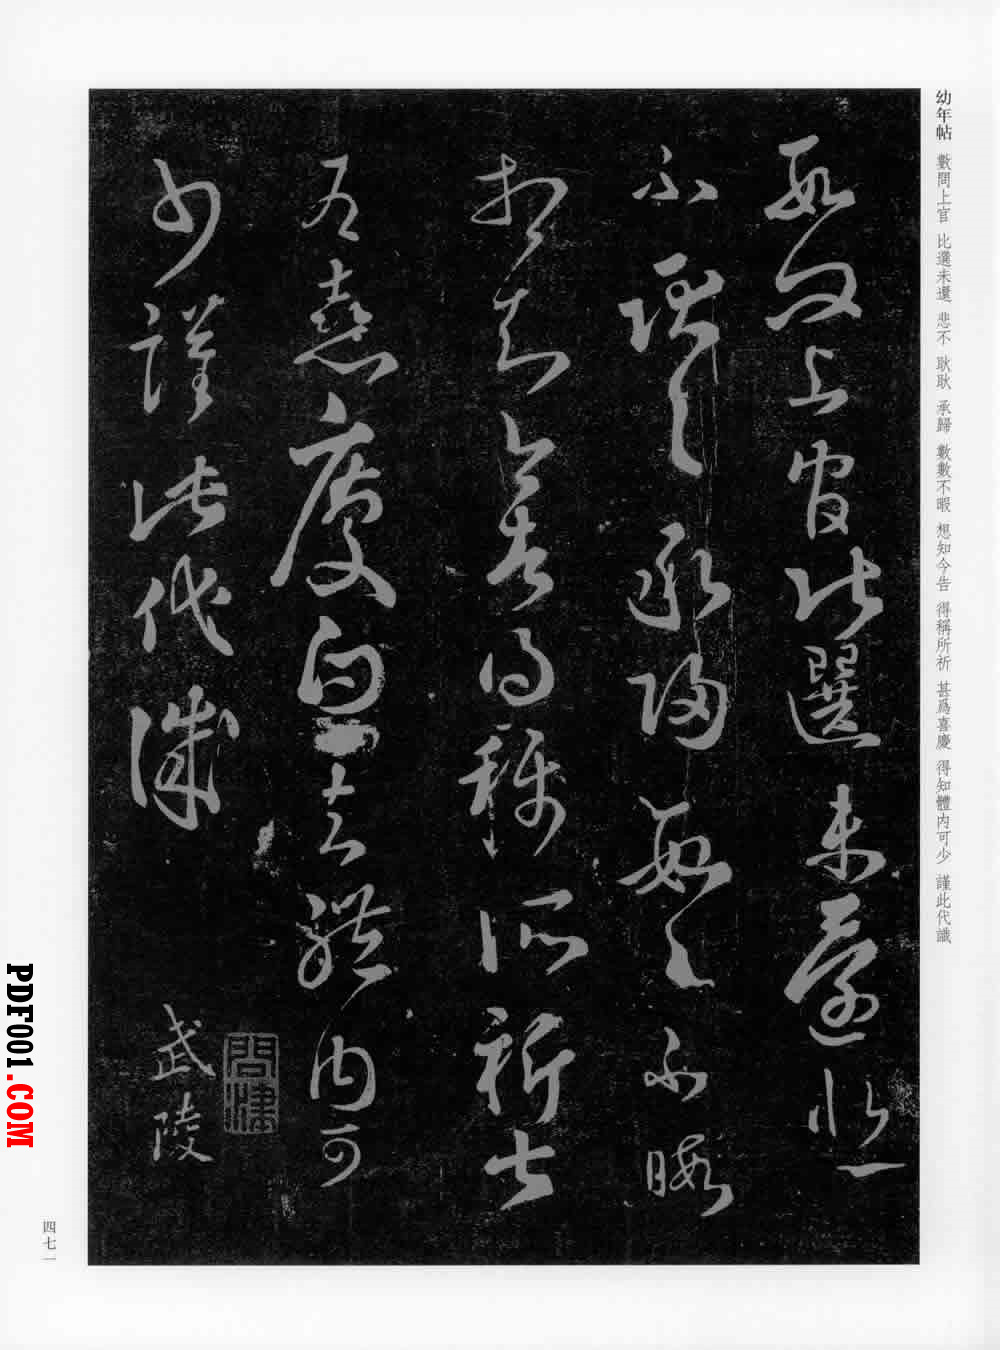 幼年帖 數問上官 比選未還 悲不 耿耿 承歸 數數不暇 想知今告 得稱所祈 甚爲喜慶 得知體內可少 謹此代識
數問上官比選未還
不耿〻承歸數〻不暇
想知
得稱所祈甚
爲喜慶
知體內可
少謹此代識
武陵
四七一
PDF001.COM